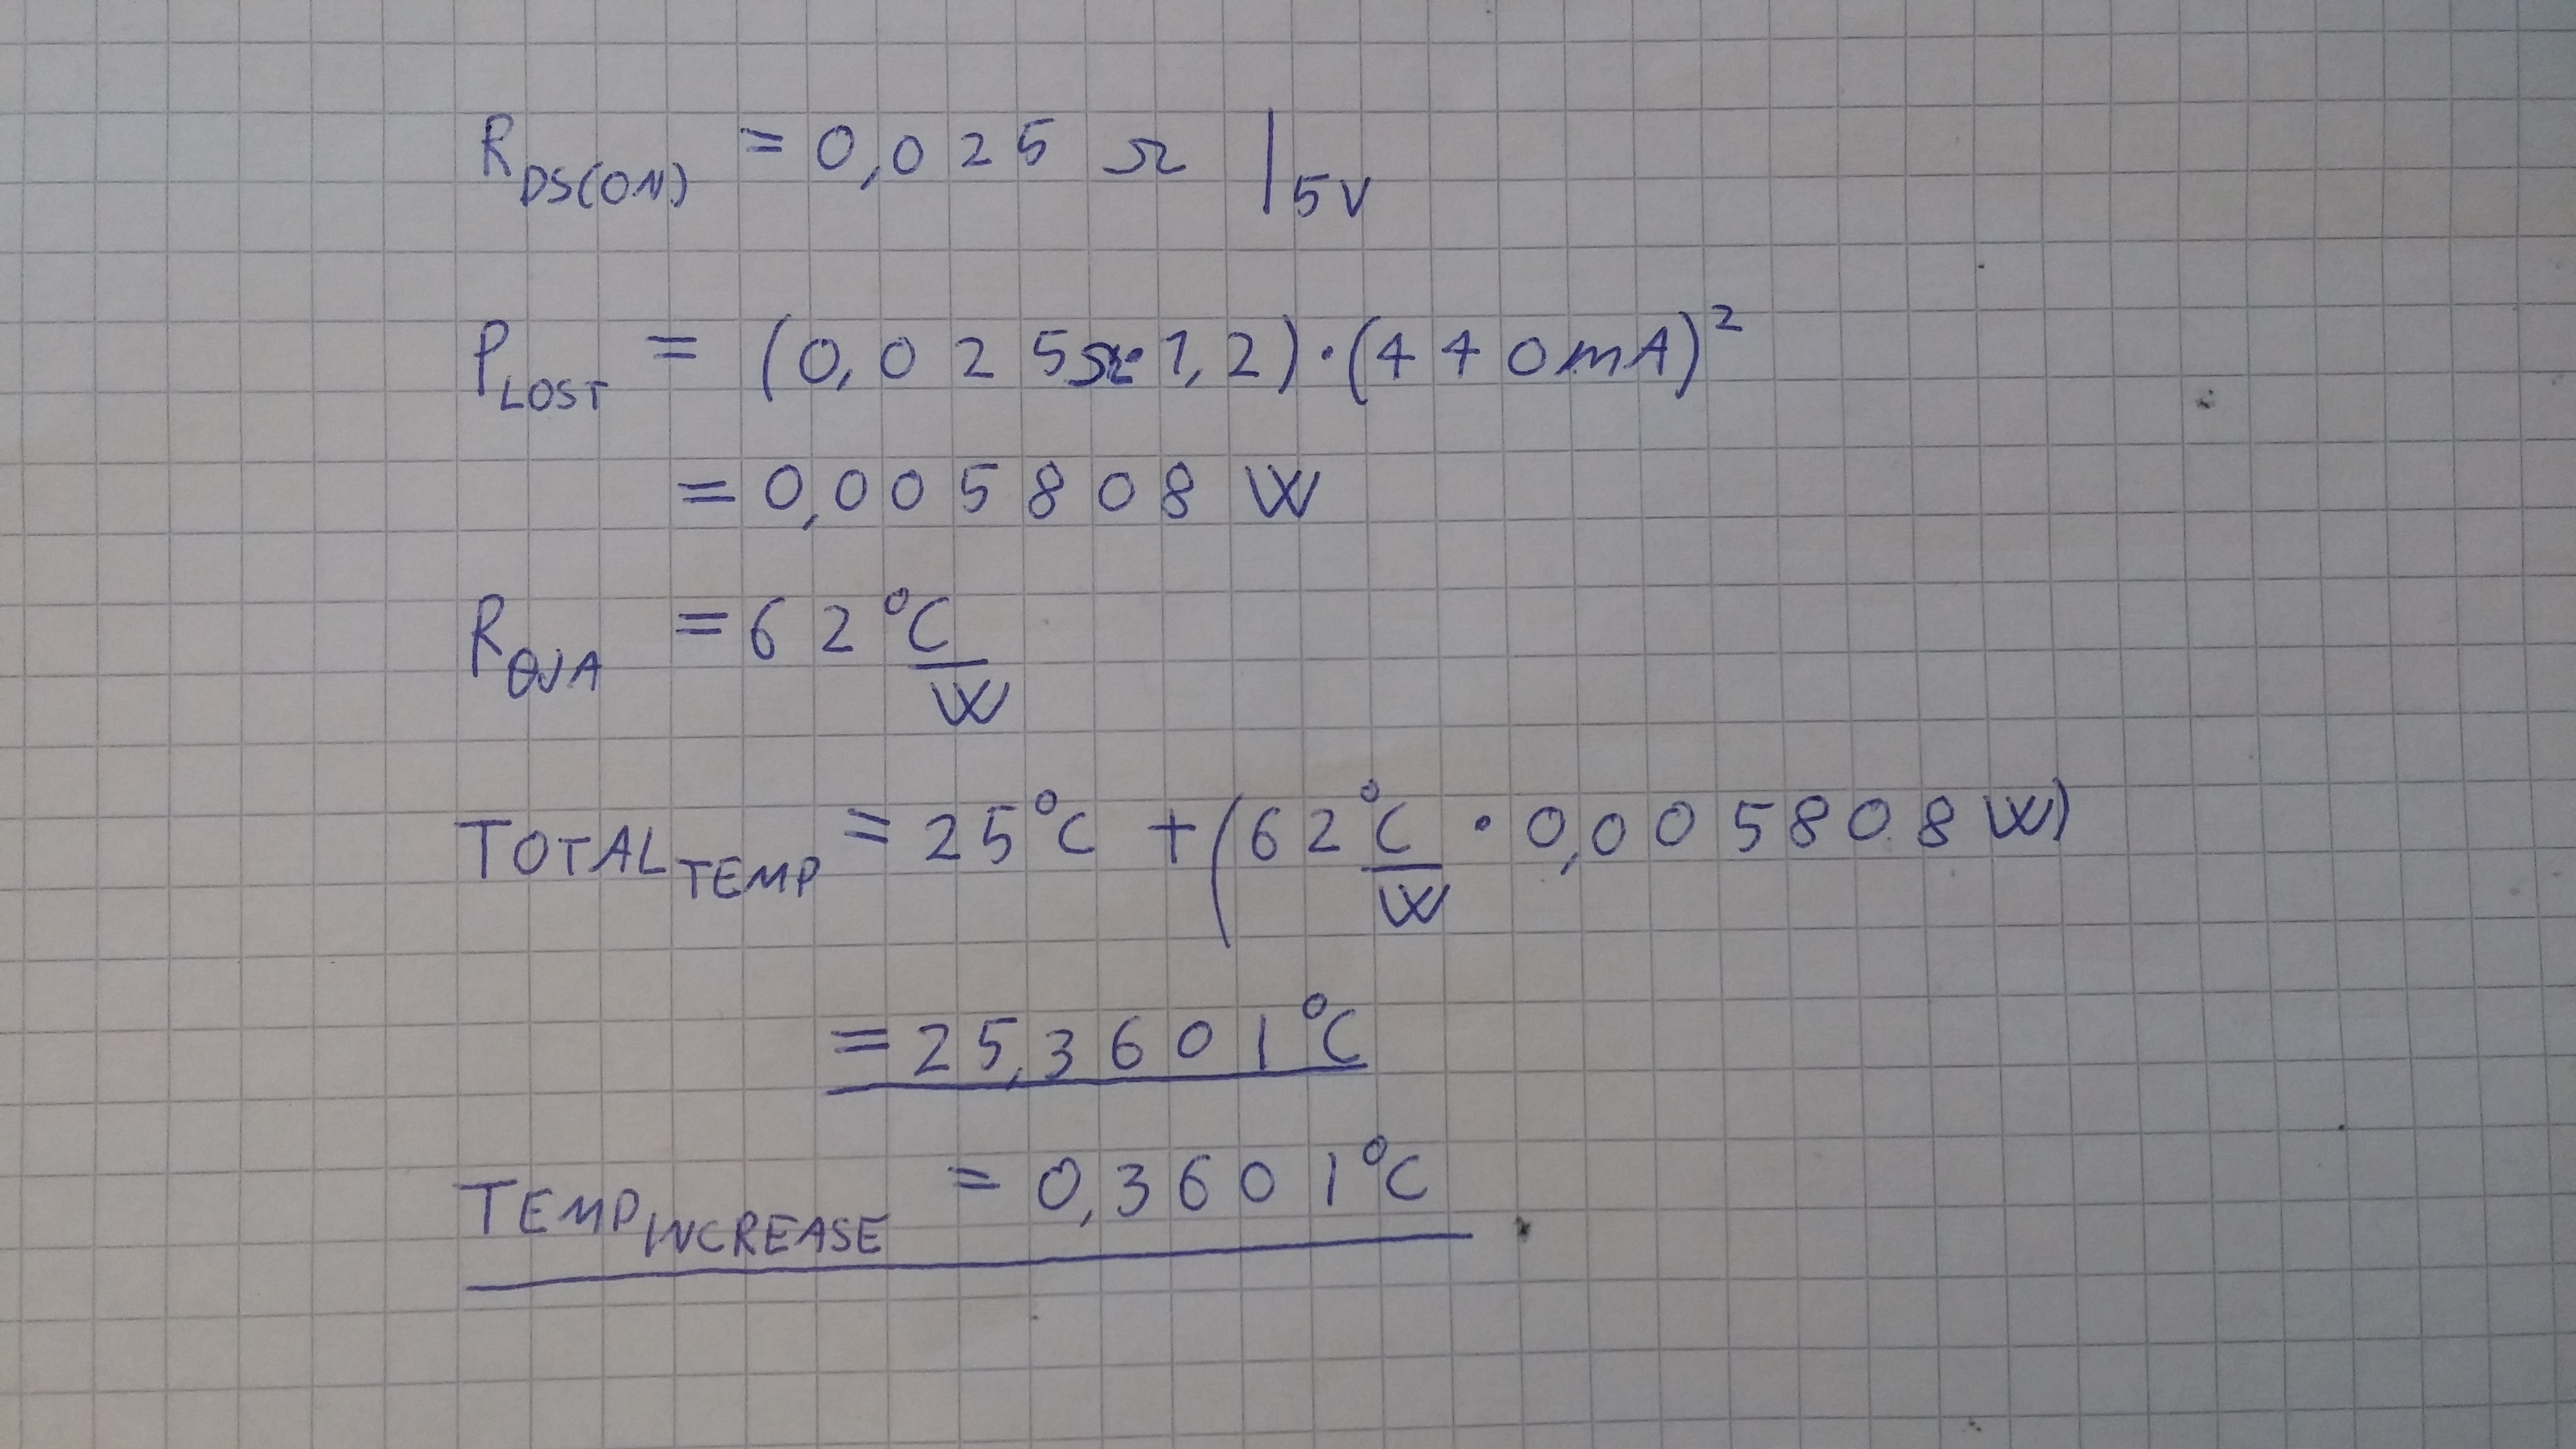 R_DS(ON) = 0,025 Ω |5V
P_LOST = (0,025Ω·1,2)·(440mA)²
= 0,005808 W
R_θJA = 62 °C/W
TOTAL_TEMP = 25°C + (62 °C/W · 0,005808 W)
= 25,3601°C
TEMP_INCREASE = 0,3601°C